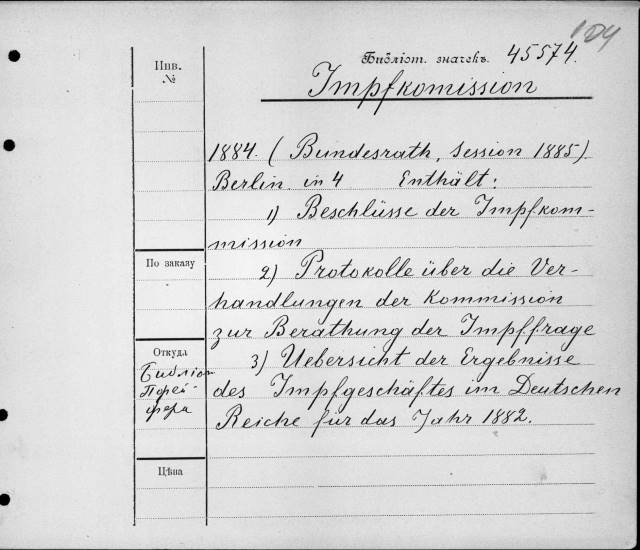 104
Библіот. значекъ. 45574.
Инв.
№
Impfkomission
1884. (Bundesrath, Session 1885)
Berlin in 4 Enthält:
1) Beschlüsse der Impfkom-
mission
2) Protokolle über die Ver-
handlungen der Kommission
zur Berathung der Impffrage
3) Uebersicht der Ergebnisse
des Impfgeschäftes im Deutschen
Reiche für das Jahr 1882.
По заказу
Откуда
Библіот
Пфей-
фера
Цѣна